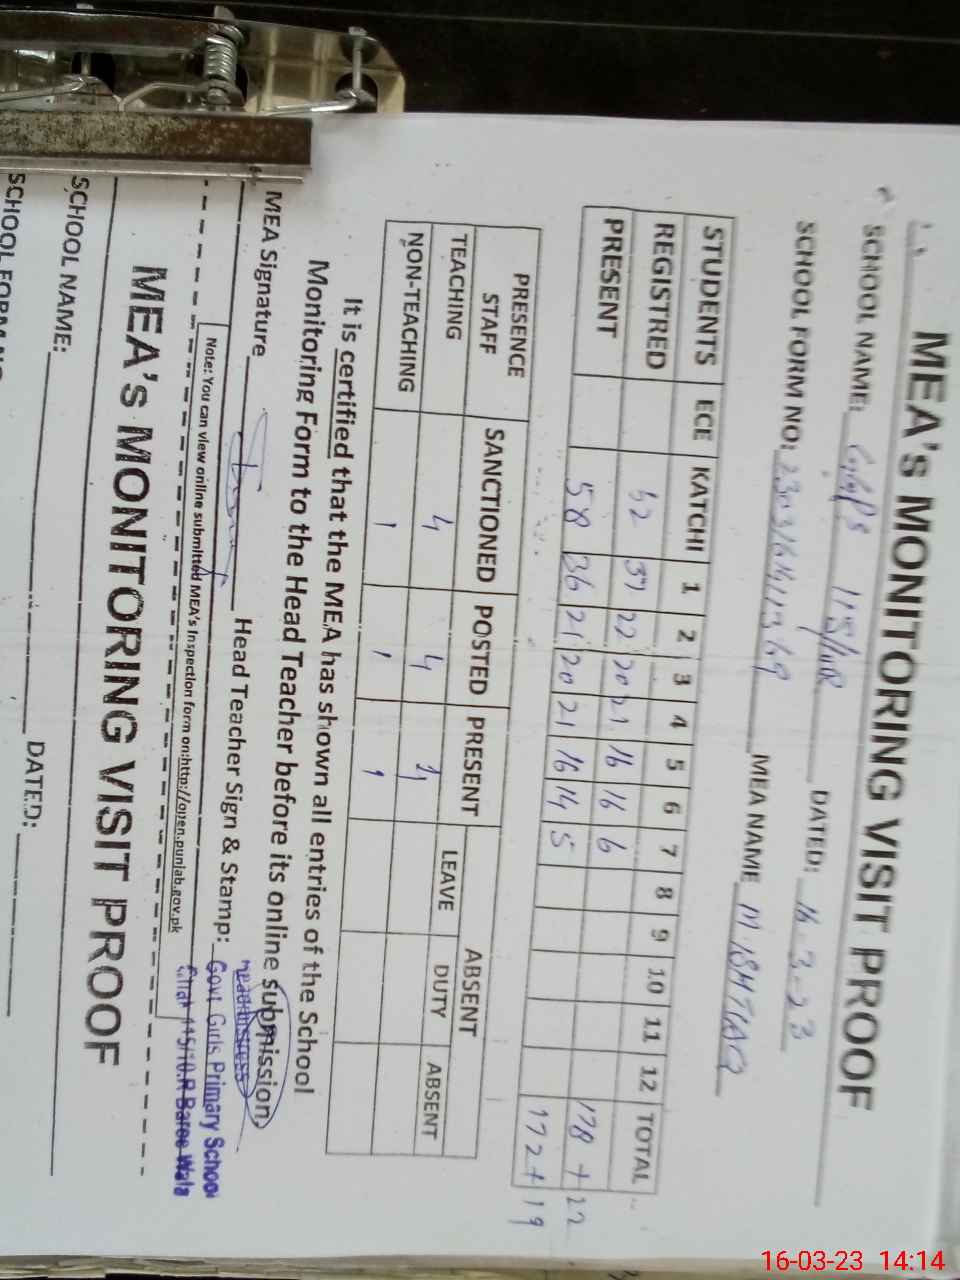 MEA's MONITORING VISIT PROOF
SCHOOL NAME: GGPS 115/10R DATED: 16-3-23
SCHOOL FORM NO: MEA NAME M. ISHTIAQ
STUDENTS ECE KATCHI 1 2 3 4 5 6 7 8 9 10 11 12 TOTAL
REGISTRED 62 37 22 20 21 16 16 6 178 + 22
PRESENT 58 36 21 20 21 16 14 5 172 + 19
PRESENCE ABSENT
STAFF SANCTIONED POSTED PRESENT LEAVE DUTY ABSENT
TEACHING 4 4 4
NON-TEACHING 1 1 1
It is certified that the MEA has shown all entries of the School
Monitoring Form to the Head Teacher before its online submission
MEA Signature Head Teacher Sign & Stamp:
Headmistress
Govt Girls Primary School
Chak 115/10.R Baree Wala
Note: You can view online submitted MEA's Inspection form on:http://open.punjab.gov.pk
MEA's MONITORING VISIT PROOF
SCHOOL NAME: DATED:
SCHOOL FORM NO
16-03-23 14:14